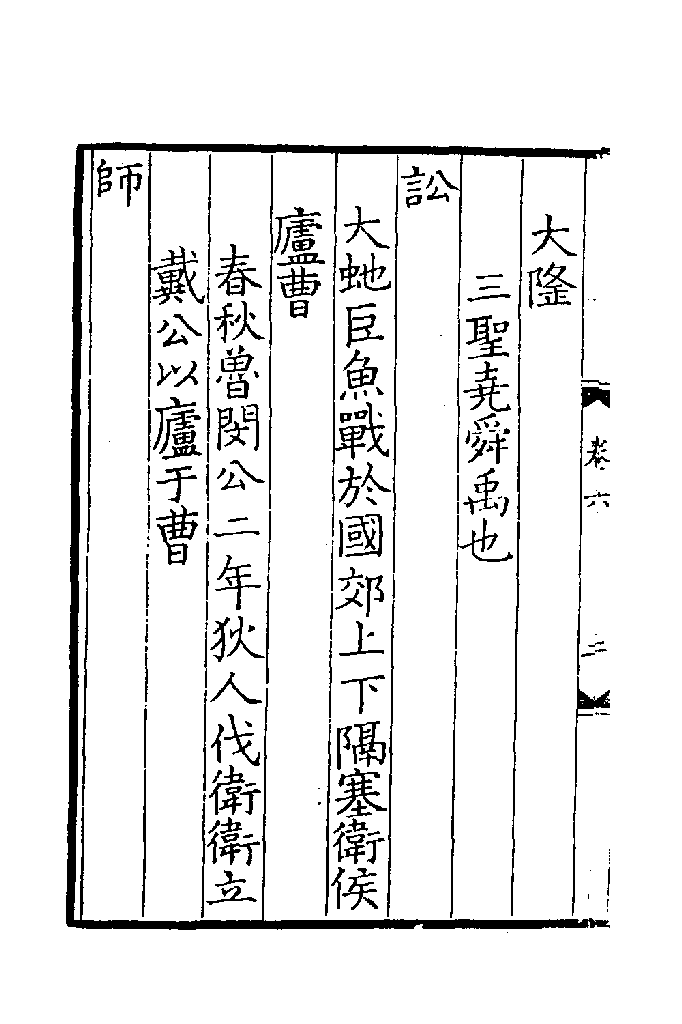 大隆
三聖堯舜禹也
訟
大虵巨魚戰於國郊上下隔塞衛侯
廬曹
春秋魯閔公二年狄人伐衛衛立
戴公以廬于曹
師
卷六
二